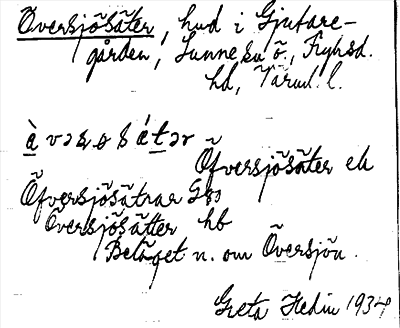 Översjösäter, hud i Gjutare-
gården, Sunne ö., Fryksd.
hd, Värml. l.
à vәrsøsǽtәr
Öfversjösäter ek
Öfversjösätrar G80
Översjösätter hb
Beläget n. om Översjön.
Greta Hedin 1934